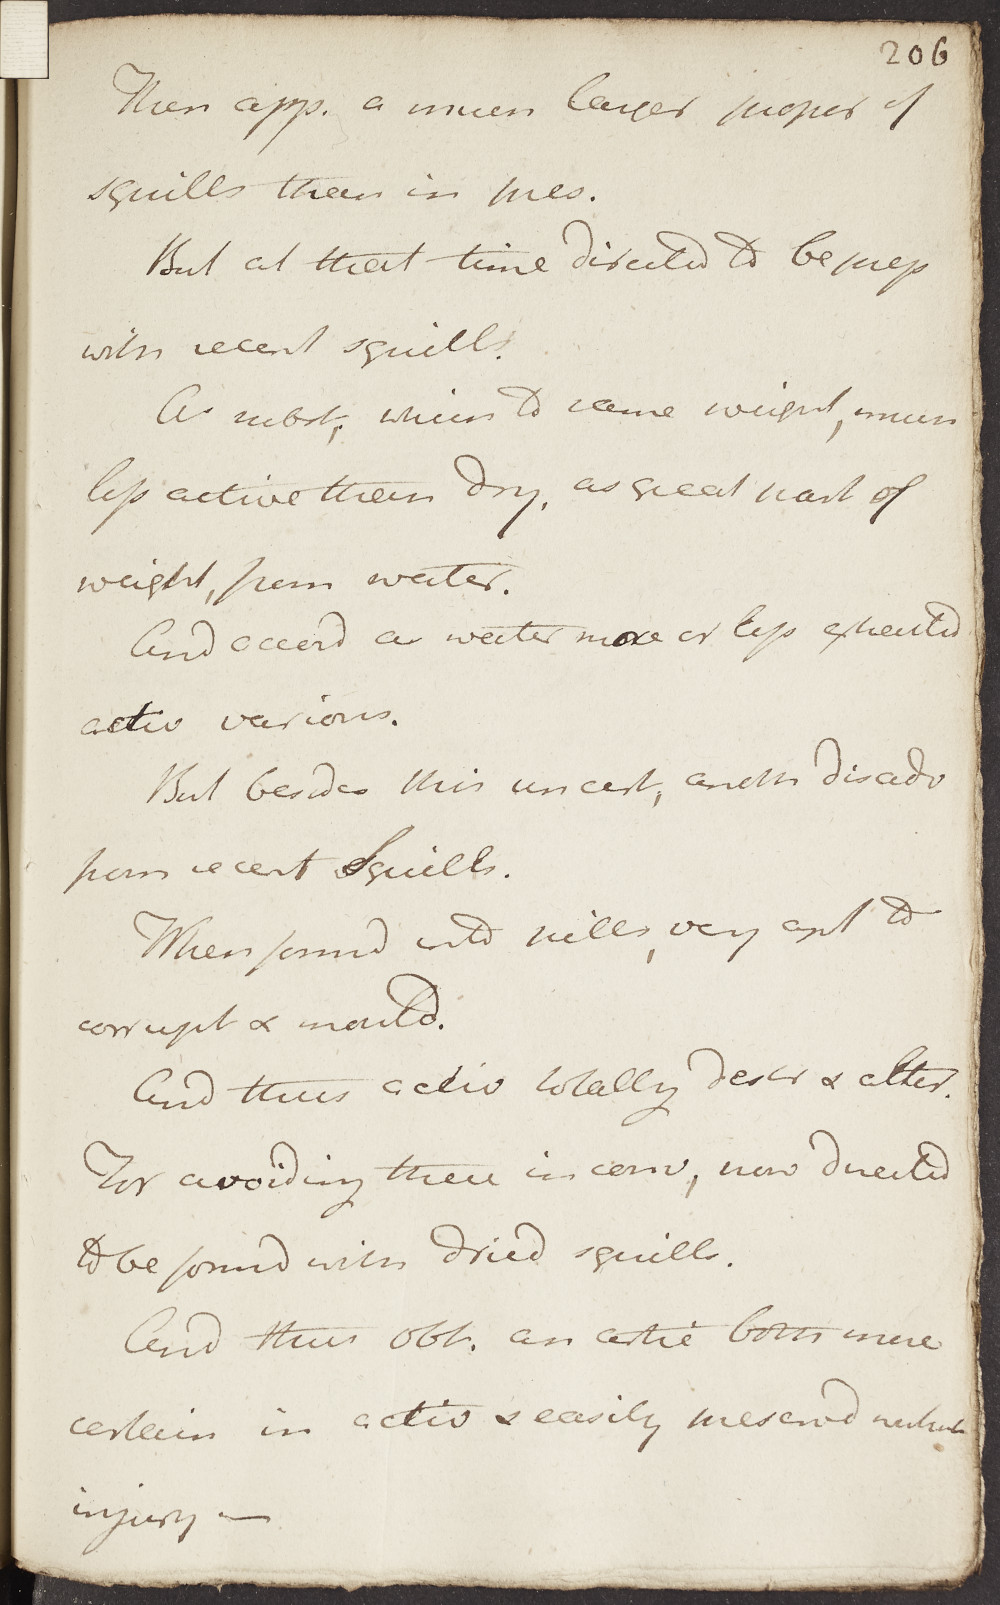 206
Then app. a much larger propor of
squills than in pres.
But at that time directed to be prep
with recent squills.
As subst, which to same weight, much
less active than dry, as great part of
weight, from water.
And accord as water more or less exhaled
activ various.
But besides this uncert, anoth disadv
from recent Squills.
When formd into pills, very apt to
corrupt & mould.
And thus activ totally destr & alter.
For avoiding these inconv, now directed
to be formd with dried squills.
And thus obt. an artic both more
certain in activ & easily preservd without
injury —